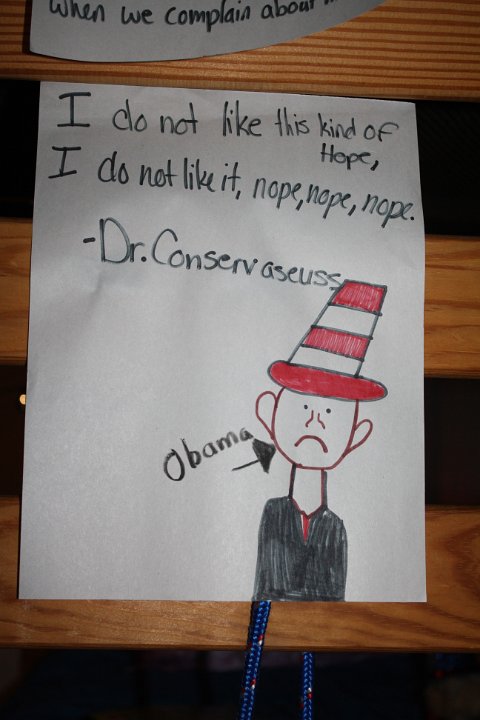 when we complain about
I do not like this kind of
Hope,
I do not like it, nope, nope, nope.
-Dr. Conservaseuss
Obama